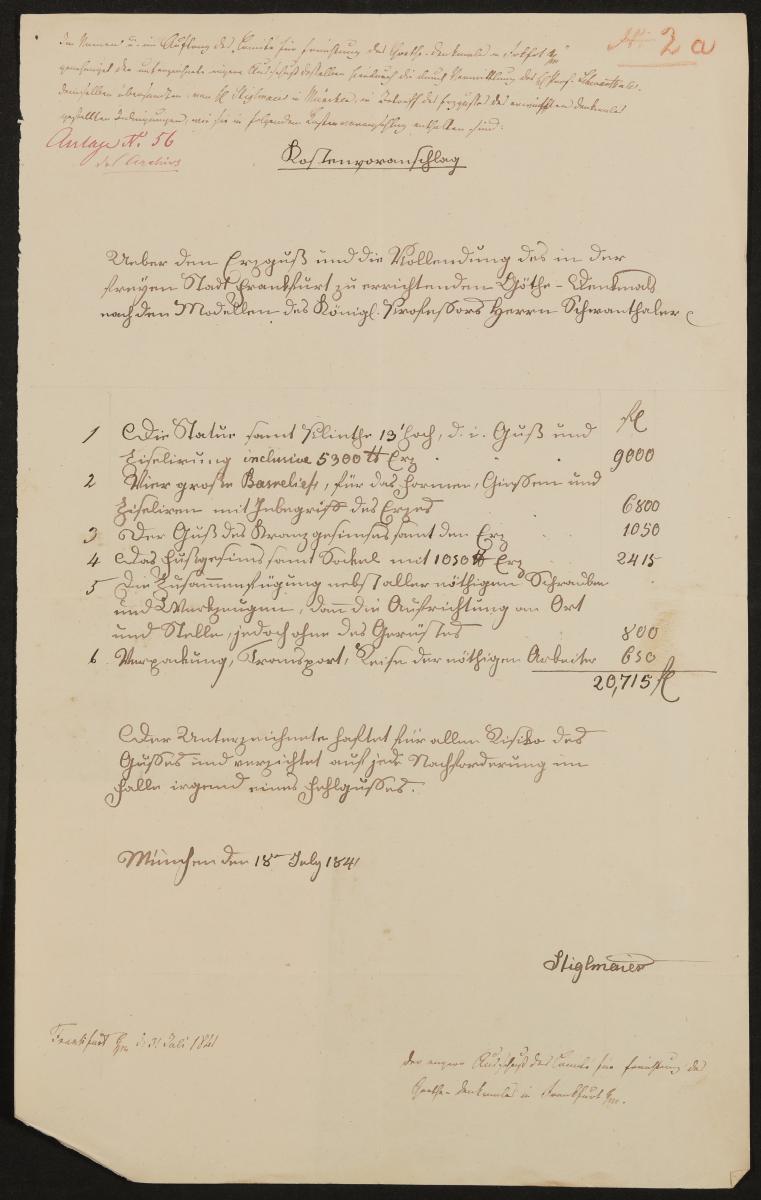 Im Namen u. im Auftrag des Comités für Errichtung des Goethe-Denkmals in Frkfrt a/m
genehmigt der unterzeichnete engere Ausschuß desselben hierdurch die durch Vermittlung des H. Prof. Schwanthaler
demselben übersandten, von H. Stiglmaier in München, in Betreff des Ergusses des erwähnten Denkmals
gestellten Bedingungen, wie sie in folgendem Kostenvoranschlag enthalten sind:
No 2a
Anlage N. 56
des Archivs
Kostenvoranschlag
Ueber den Erzguß und die Vollendung des in der
freyen Stadt Frankfurt zu errichtenden Göthe-Denkmals
nach den Modellen des Königl. Professors Herrn Schwanthaler
fl
1 Die Statue samt Plinthe 13' hoch, d. i. Guß und
Ziselirung inclusive 5300 ℔ Erz 9000
2 Vier große Basreliefs, für das Formen, Giessen und
Ziseliren mit Inbegriff des Erzes 6800
3 Der Guß des Kranzgesimses samt dem Erz 1050
4 Das Fußgesims samt Sockel mit 1050 ℔ Erz 2415
5 Die Zusammenfügung nebst aller nöthigen Schrauben
und Werkzeugen, dann die Aufrichtung an Ort
und Stelle, jedoch ohne das Gerüstes 800
6 Verpackung, Transport, Reise der nöthigen Arbeiter 650
20,715 fl
Der Unterzeichnete haftet für allen Risiko des
Gusses und verzichtet auf jede Nachforderung im
Falle irgend eines Fehlgusses.
München den 18ten July 1841
Stiglmaier
Frankfurt a/m d. 31 Juli 1841
Der engere Ausschuß des Comités für Errichtung des
Goethe-Denkmals in Frankfurt a/m.